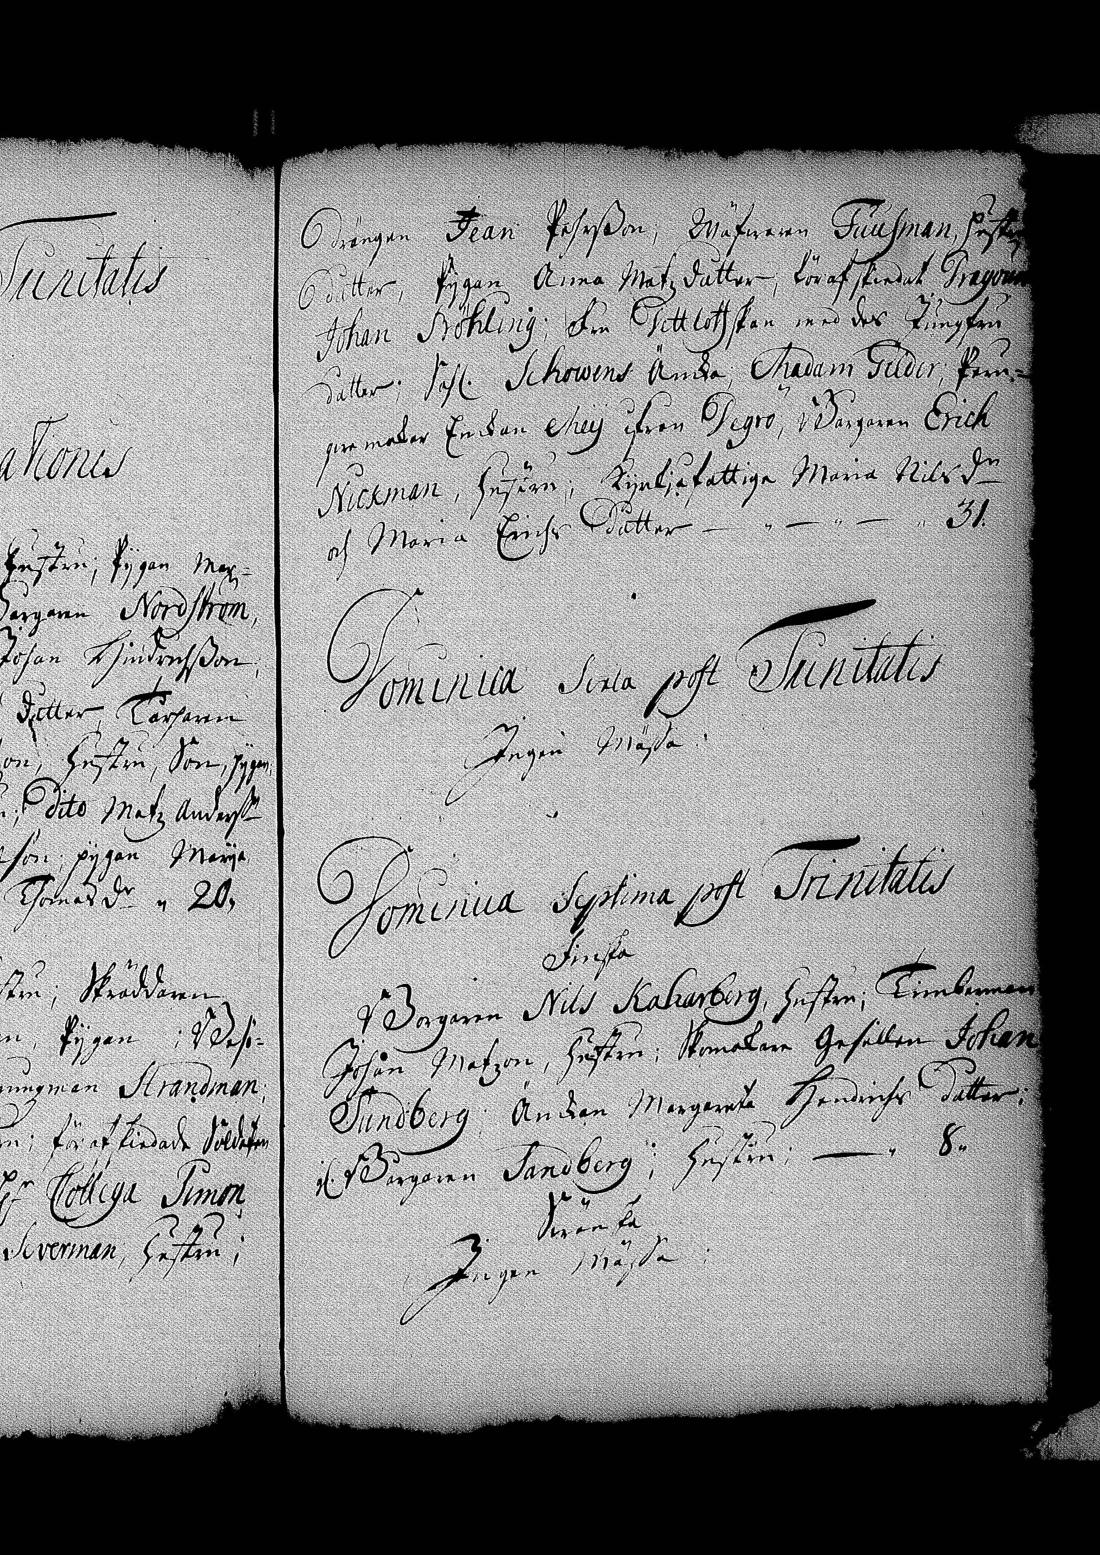 Trinitatis
ationis
Hustru, Pygan Mar=
Borgaren Nordström,
Johan Hindrichsson,
dåtter, Torparen
on, Hustru, Son, pygan,
Dito Matz Anderss
son, pygan Marja
Thomas dr 20,
Hustru; Skräddaren
Pygan
ungman Strandman,
för afskiedade Soldaten
Collega Simon
Severman, Hustru;
drängen Jean Pehrsson, Muraren Tuusman, Hustru
dåtter, Pygan Anna Matz dåtter, för afskiedat Dragoun
Johan Fröhling; Fru med des Jungfru
dåtter; Sahl. Schowens Änka, Madam Gilder, Peru=
que makar Enkan Meij ifrån Degrö, Borgaren Erich
Nickman, Hustru; Kyrkjefattiga Maria Nils dr
och Maria Erichs dåtter — " — " — " 31.
Dominica Sexta post Trinitatis
Ingen Mässa.
Dominica Septima post Trinitatis
Finska
Borgaren Nils Kaharberg, Hustru; Timberman
Johan Matzon, Hustru; Skomakare Gesällen Johan
Sundberg; Änkan Margareta Hendrichs dåtter;
Borgaren Sandberg; Hustru; — " 8"
Svenska
Ingen Mässa;